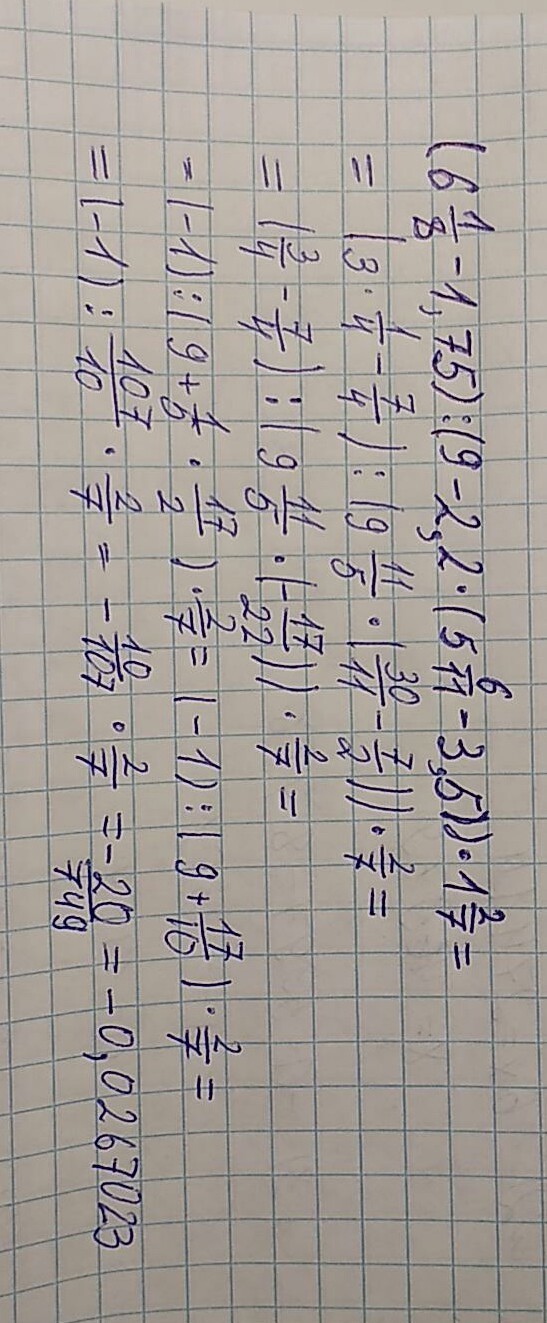 (6 1/8 - 1,75) : (9 - 2,2 · (5 6/11 - 3,5)) · 1 2/7 =
= (3 · 1/4 - 7/4) : (9 11/5 · (30/11 - 7/2)) · 2/7 =
= (3/4 - 7/4) : (9 11/5 · (-17/22)) · 2/7 =
= (-1) : (9 + 1/5 · 17/2) · 2/7 = (-1) : (9 + 17/10) · 2/7 =
= (-1) : 107/10 · 2/7 = - 10/107 · 2/7 = - 20/749 = - 0,0267023